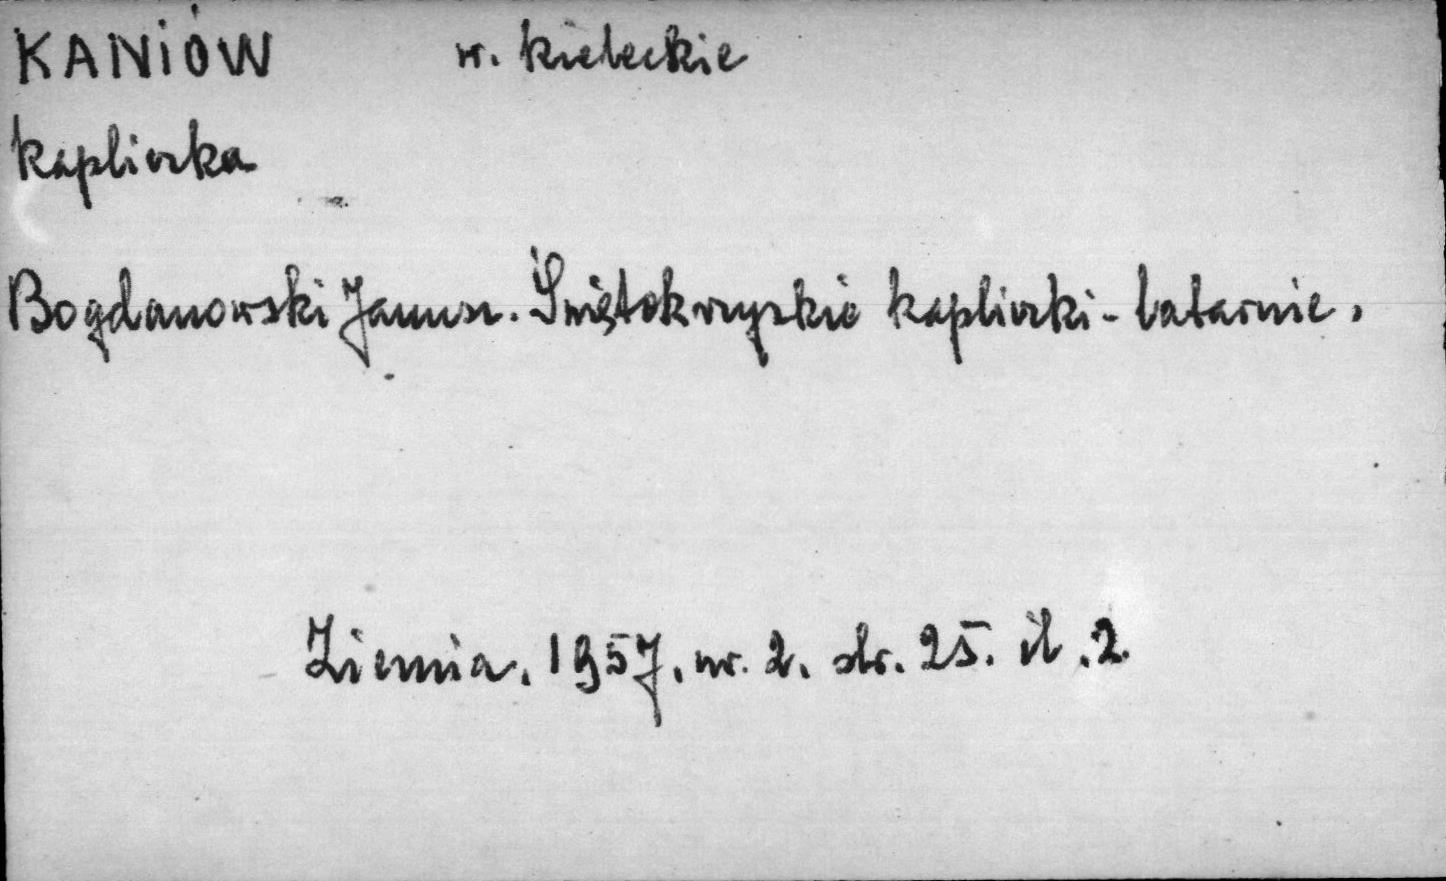 KANIÓW w. kieleckie
kapliczka
Bogdanowski Janusz. Świętokrzyskie kapliczki-latarnie.
Ziemia. 1957. nr. 2. str. 25. il. 2.